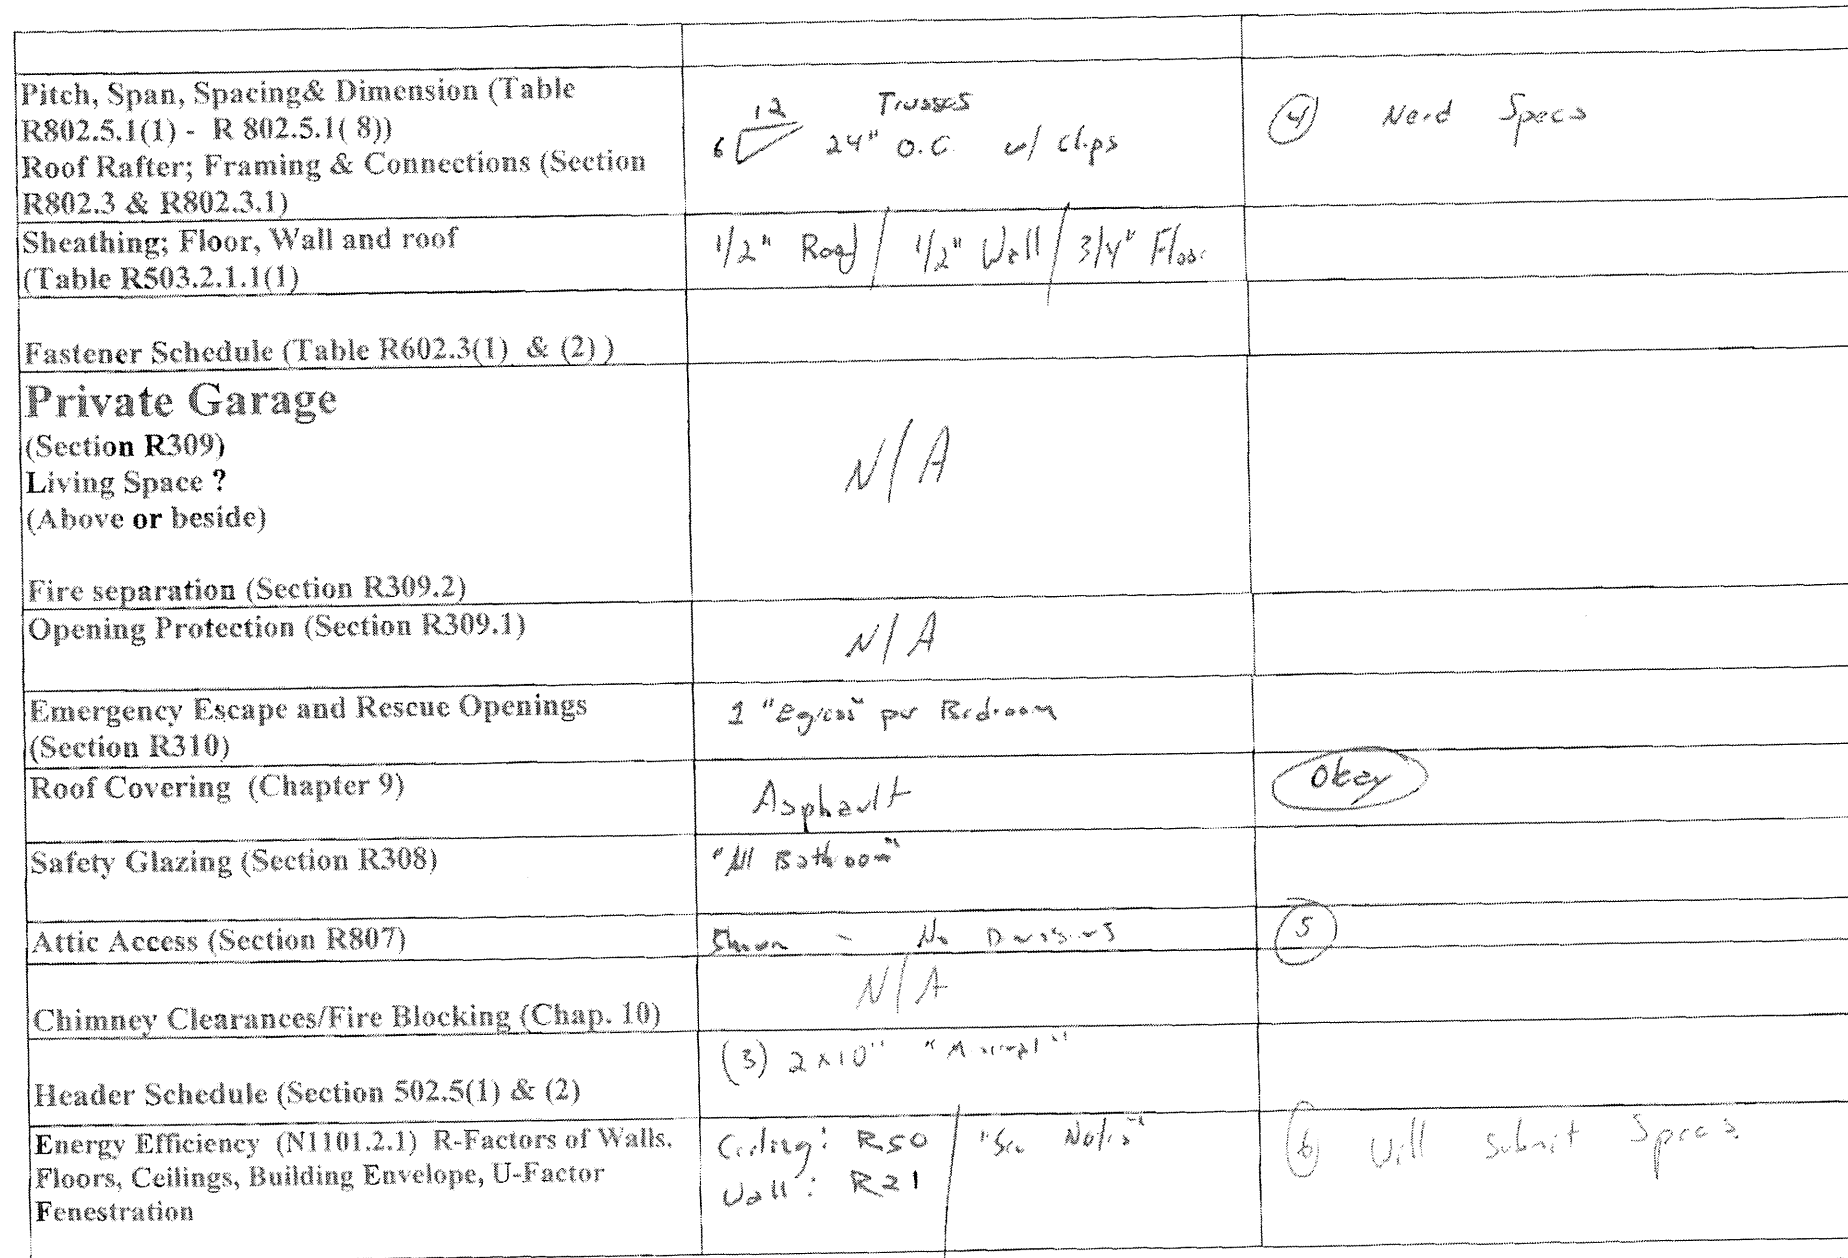 Pitch, Span, Spacing& Dimension (Table
R802.5.1(1) - R 802.5.1( 8))
Roof Rafter; Framing & Connections (Section
R802.3 & R802.3.1)
12 Trusses
6 24" O.C. w/ Clips
4 Need Specs
Sheathing; Floor, Wall and roof
(Table R503.2.1.1(1)
1/2" Roof / 1/2" Wall / 3/4" Floor
Fastener Schedule (Table R602.3(1) & (2) )
Private Garage
(Section R309)
Living Space ?
(Above or beside)
Fire separation (Section R309.2)
N/A
Opening Protection (Section R309.1)
N/A
Emergency Escape and Rescue Openings
(Section R310)
1 "Egress" per Bedroom
Roof Covering (Chapter 9)
Asphault
Okay
Safety Glazing (Section R308)
"All Bathroom"
Attic Access (Section R807)
Shown - No
5
Chimney Clearances/Fire Blocking (Chap. 10)
N/A
Header Schedule (Section 502.5(1) & (2)
(3) 2x10"
Energy Efficiency (N1101.2.1) R-Factors of Walls,
Floors, Ceilings, Building Envelope, U-Factor
Fenestration
Ceiling: R50 / "See Notes"
Wall: R21
6 Will Submit Specs